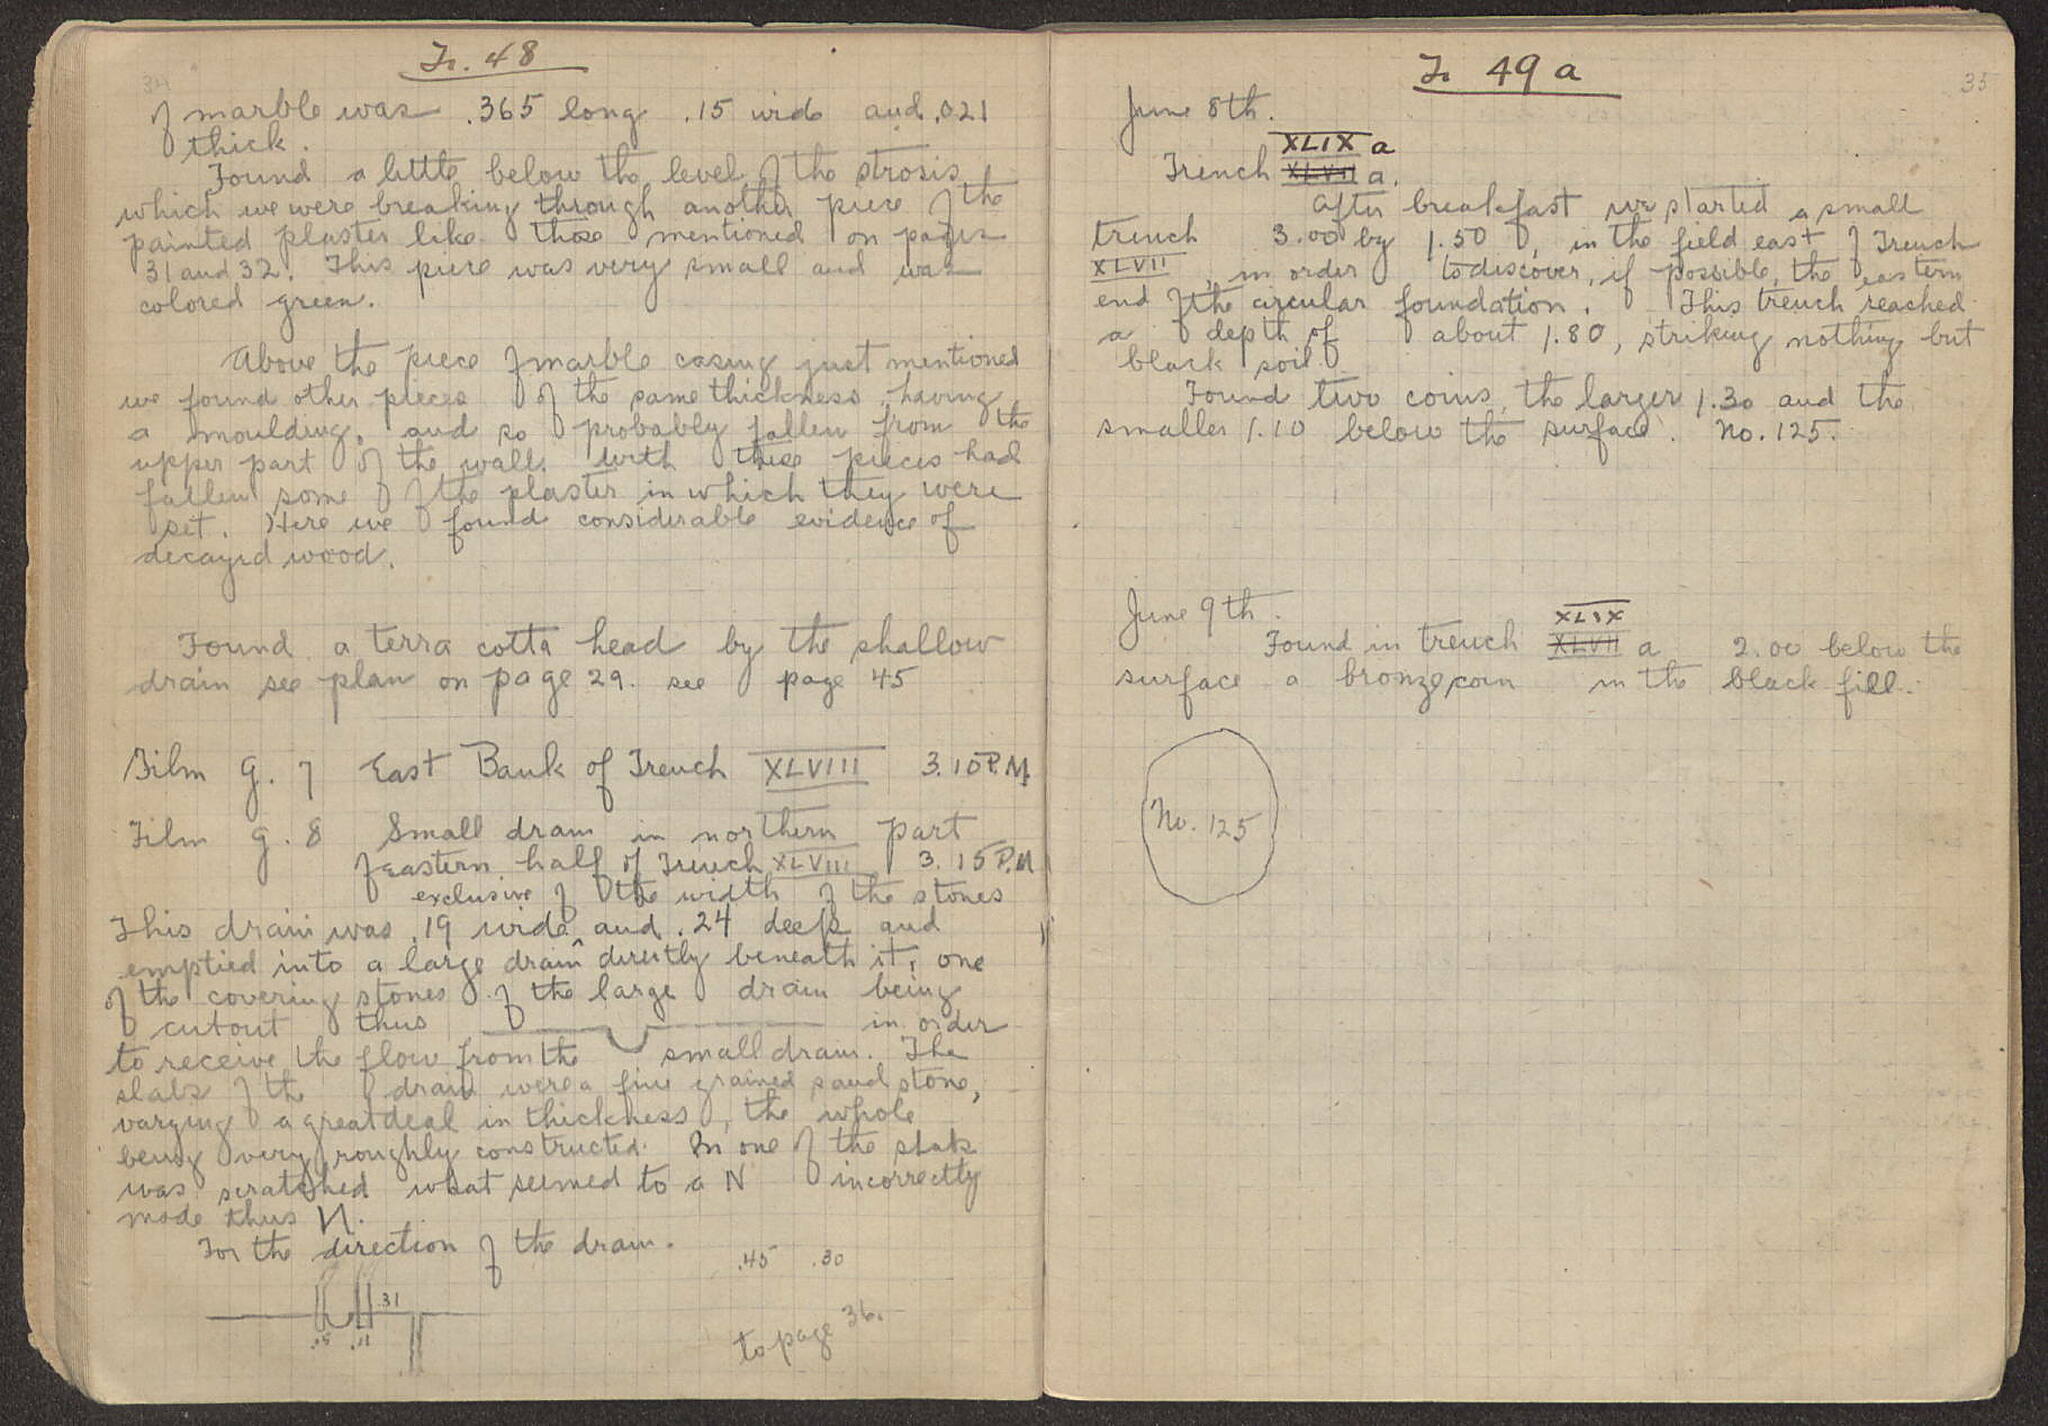 34
Tr. 48
of marble was .365 long .15 wide and .021
thick.
Found a little below the level of the strosis
which we were breaking through another piece of the
painted plaster like those mentioned on pages
31 and 32. This piece was very small and was
colored green.
Above the piece of marble casing just mentioned
we found other pieces of the same thickness, having
a moulding, and so probably fallen from the
upper part of the wall. With these pieces had
fallen some of the plaster in which they were
set. Here we found considerable evidence of
decayed wood.
Found a terra cotta head by the shallow
drain see plan on page 29. see page 45
Film G. 7 East Bank of Trench XLVIII 3.10 P.M.
Film G. 8 Small drain in northern part
of eastern half of Trench XLVIII 3.15 P.M
exclusive of the width of the stones
This drain was .19 wide and .24 deep and
emptied into a large drain directly beneath it, one
of the covering stones of the large drain being
cut out thus in order
to receive the flow from the small drain. The
slabs of the drain were a fine grained sand stone,
varying a great deal in thickness, the whole
being very roughly constructed. In one of the slabs
was scratched what seemed to a N incorrectly
made thus И.
For the direction of the drain.
.45 .30
.31
.11
to page 36.
35
Tr 49 a
June 8th.
XLIX a
Trench XLVII a.
After breakfast we started a small
trench 3.00 by 1.50, in the field east of Trench
XLVII, in order to discover, if possible, the eastern
end of the circular foundation. This trench reached
a depth of about 1.80, striking nothing but
black soil.
Found two coins, the larger 1.30 and the
smaller 1.10 below the surface. No. 125.
June 9th.
XLIX
Found in trench XLVII a 2.00 below the
surface a bronze coin in the black fill.
No. 125